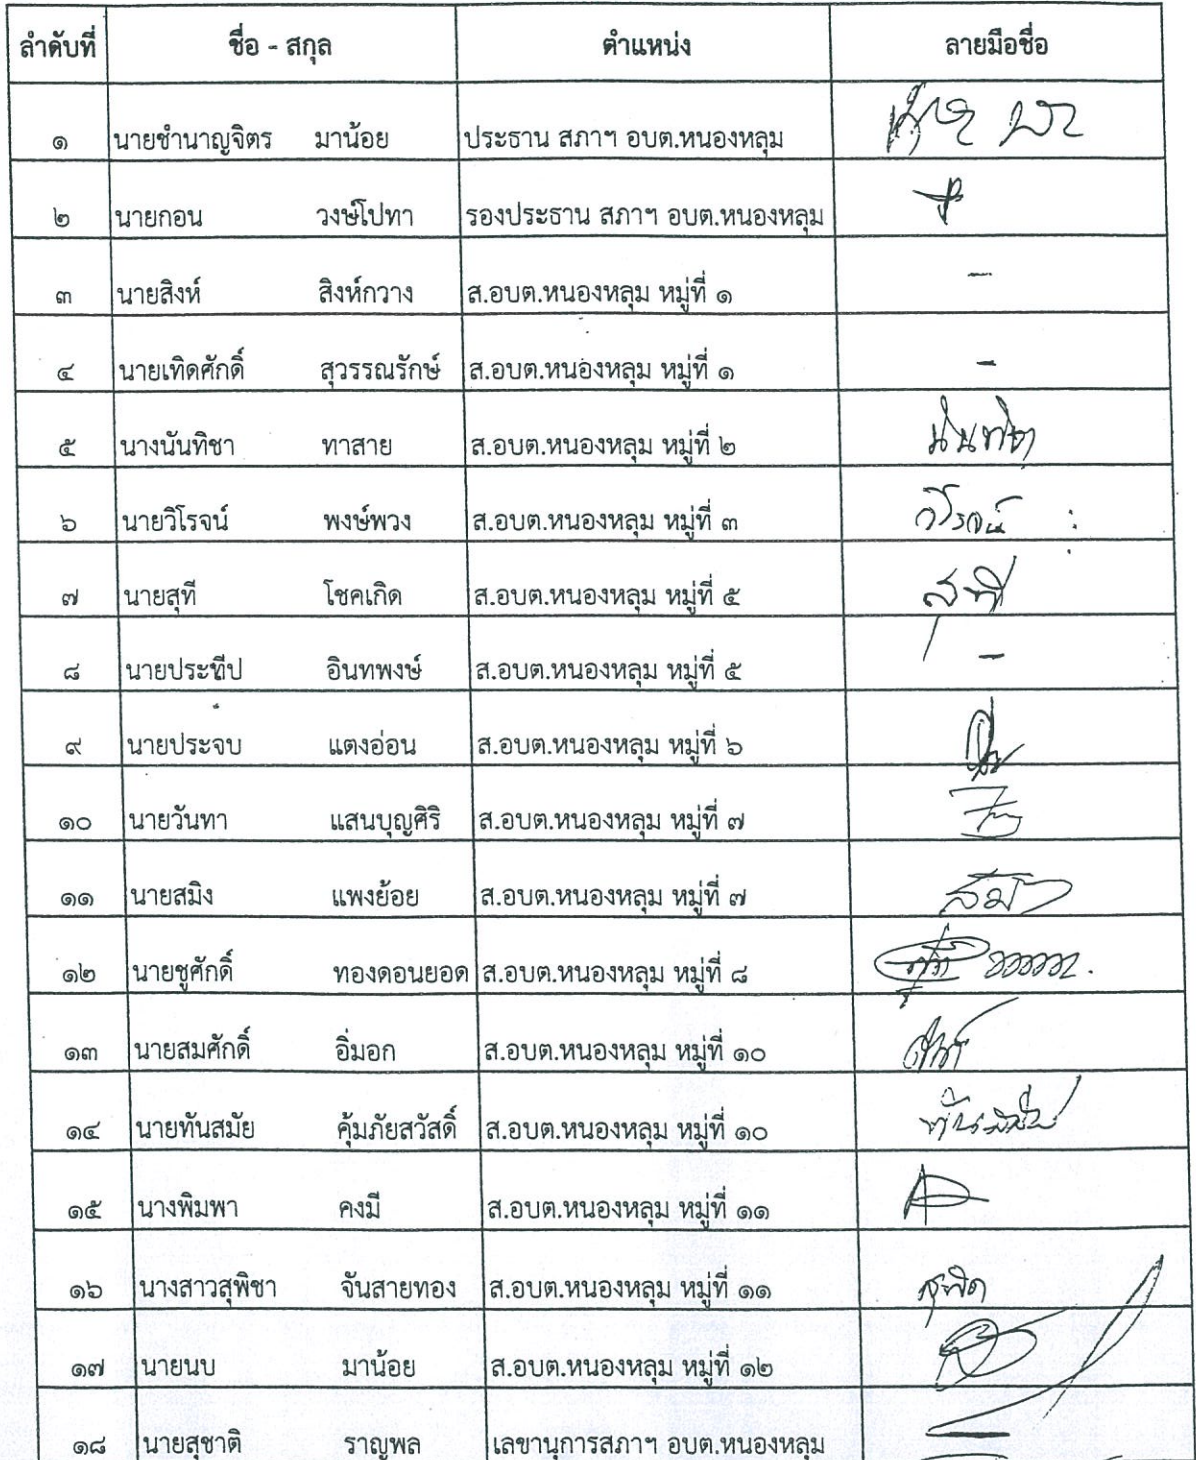 ลำดับที่ ชื่อ - สกุล ตำแหน่ง ลายมือชื่อ
๑ นายชำนาญจิตร มาน้อย ประธาน สภาฯ อบต.หนองหลุม
๒ นายกอน วงษ์โปทา รองประธาน สภาฯ อบต.หนองหลุม
๓ นายสิงห์ สิงห์กวาง ส.อบต.หนองหลุม หมู่ที่ ๑ -
๔ นายเทิดศักดิ์ สุวรรณรักษ์ ส.อบต.หนองหลุม หมู่ที่ ๑ -
๕ นางนันทิชา ทาสาย ส.อบต.หนองหลุม หมู่ที่ ๒
๖ นายวิโรจน์ พงษ์พวง ส.อบต.หนองหลุม หมู่ที่ ๓ วิโรจน์
๗ นายสุที โชคเกิด ส.อบต.หนองหลุม หมู่ที่ ๕ สุที
๘ นายประทีป อินทพงษ์ ส.อบต.หนองหลุม หมู่ที่ ๕ -
๙ นายประจบ แตงอ่อน ส.อบต.หนองหลุม หมู่ที่ ๖
๑๐ นายวันทา แสนบุญศิริ ส.อบต.หนองหลุม หมู่ที่ ๗
๑๑ นายสมิง แพงย้อย ส.อบต.หนองหลุม หมู่ที่ ๗
๑๒ นายชูศักดิ์ ทองดอนยอด ส.อบต.หนองหลุม หมู่ที่ ๘
๑๓ นายสมศักดิ์ อิ่มอก ส.อบต.หนองหลุม หมู่ที่ ๑๐
๑๔ นายทันสมัย คุ้มภัยสวัสดิ์ ส.อบต.หนองหลุม หมู่ที่ ๑๐ ทันสมัย
๑๕ นางพิมพา คงมี ส.อบต.หนองหลุม หมู่ที่ ๑๑
๑๖ นางสาวสุพิชา จันสายทอง ส.อบต.หนองหลุม หมู่ที่ ๑๑
๑๗ นายนบ มาน้อย ส.อบต.หนองหลุม หมู่ที่ ๑๒
๑๘ นายสุชาติ ราญพล เลขานุการสภาฯ อบต.หนองหลุม